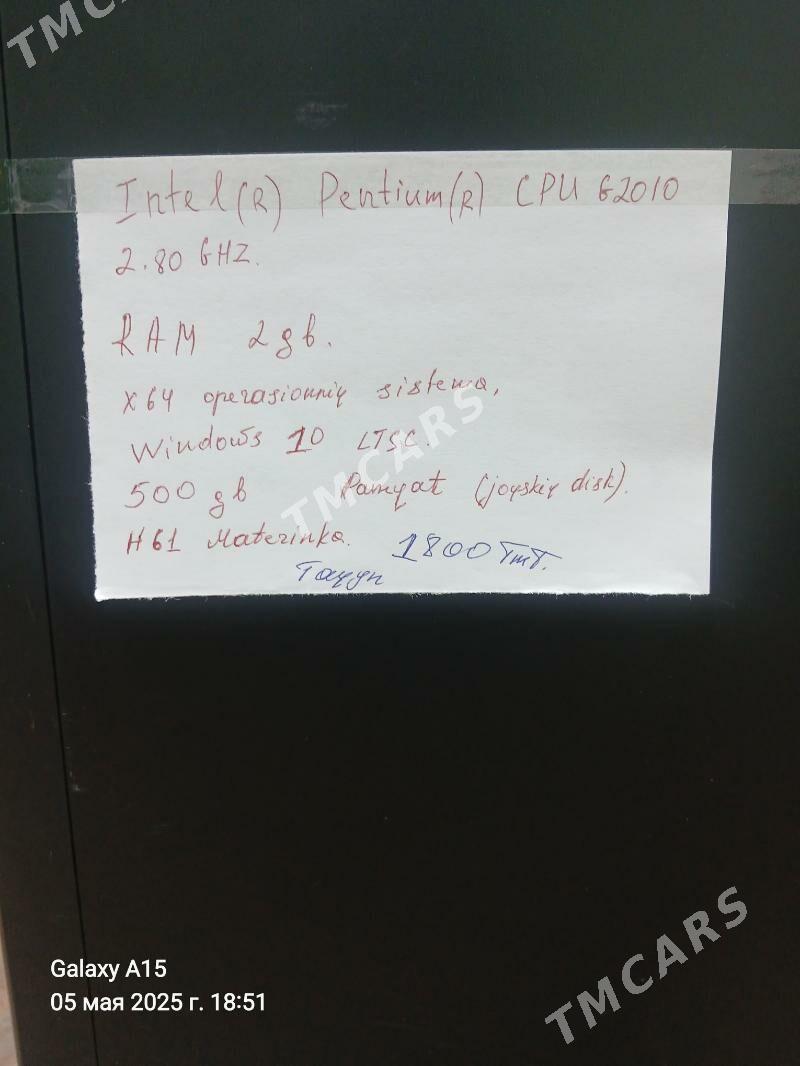 TMCARS
Intel(R) Pentium(R) CPU G2010
2.80 GHZ.
RAM 2gb.
X64 operasionniy sistema,
Windows 10 LTSC.
TMCARS
500 gb Pamyat (joyskiy disk).
H61 Materinka. 1800 TmT.
Galaxy A15
05 мая 2025 г. 18:51
TMCARS